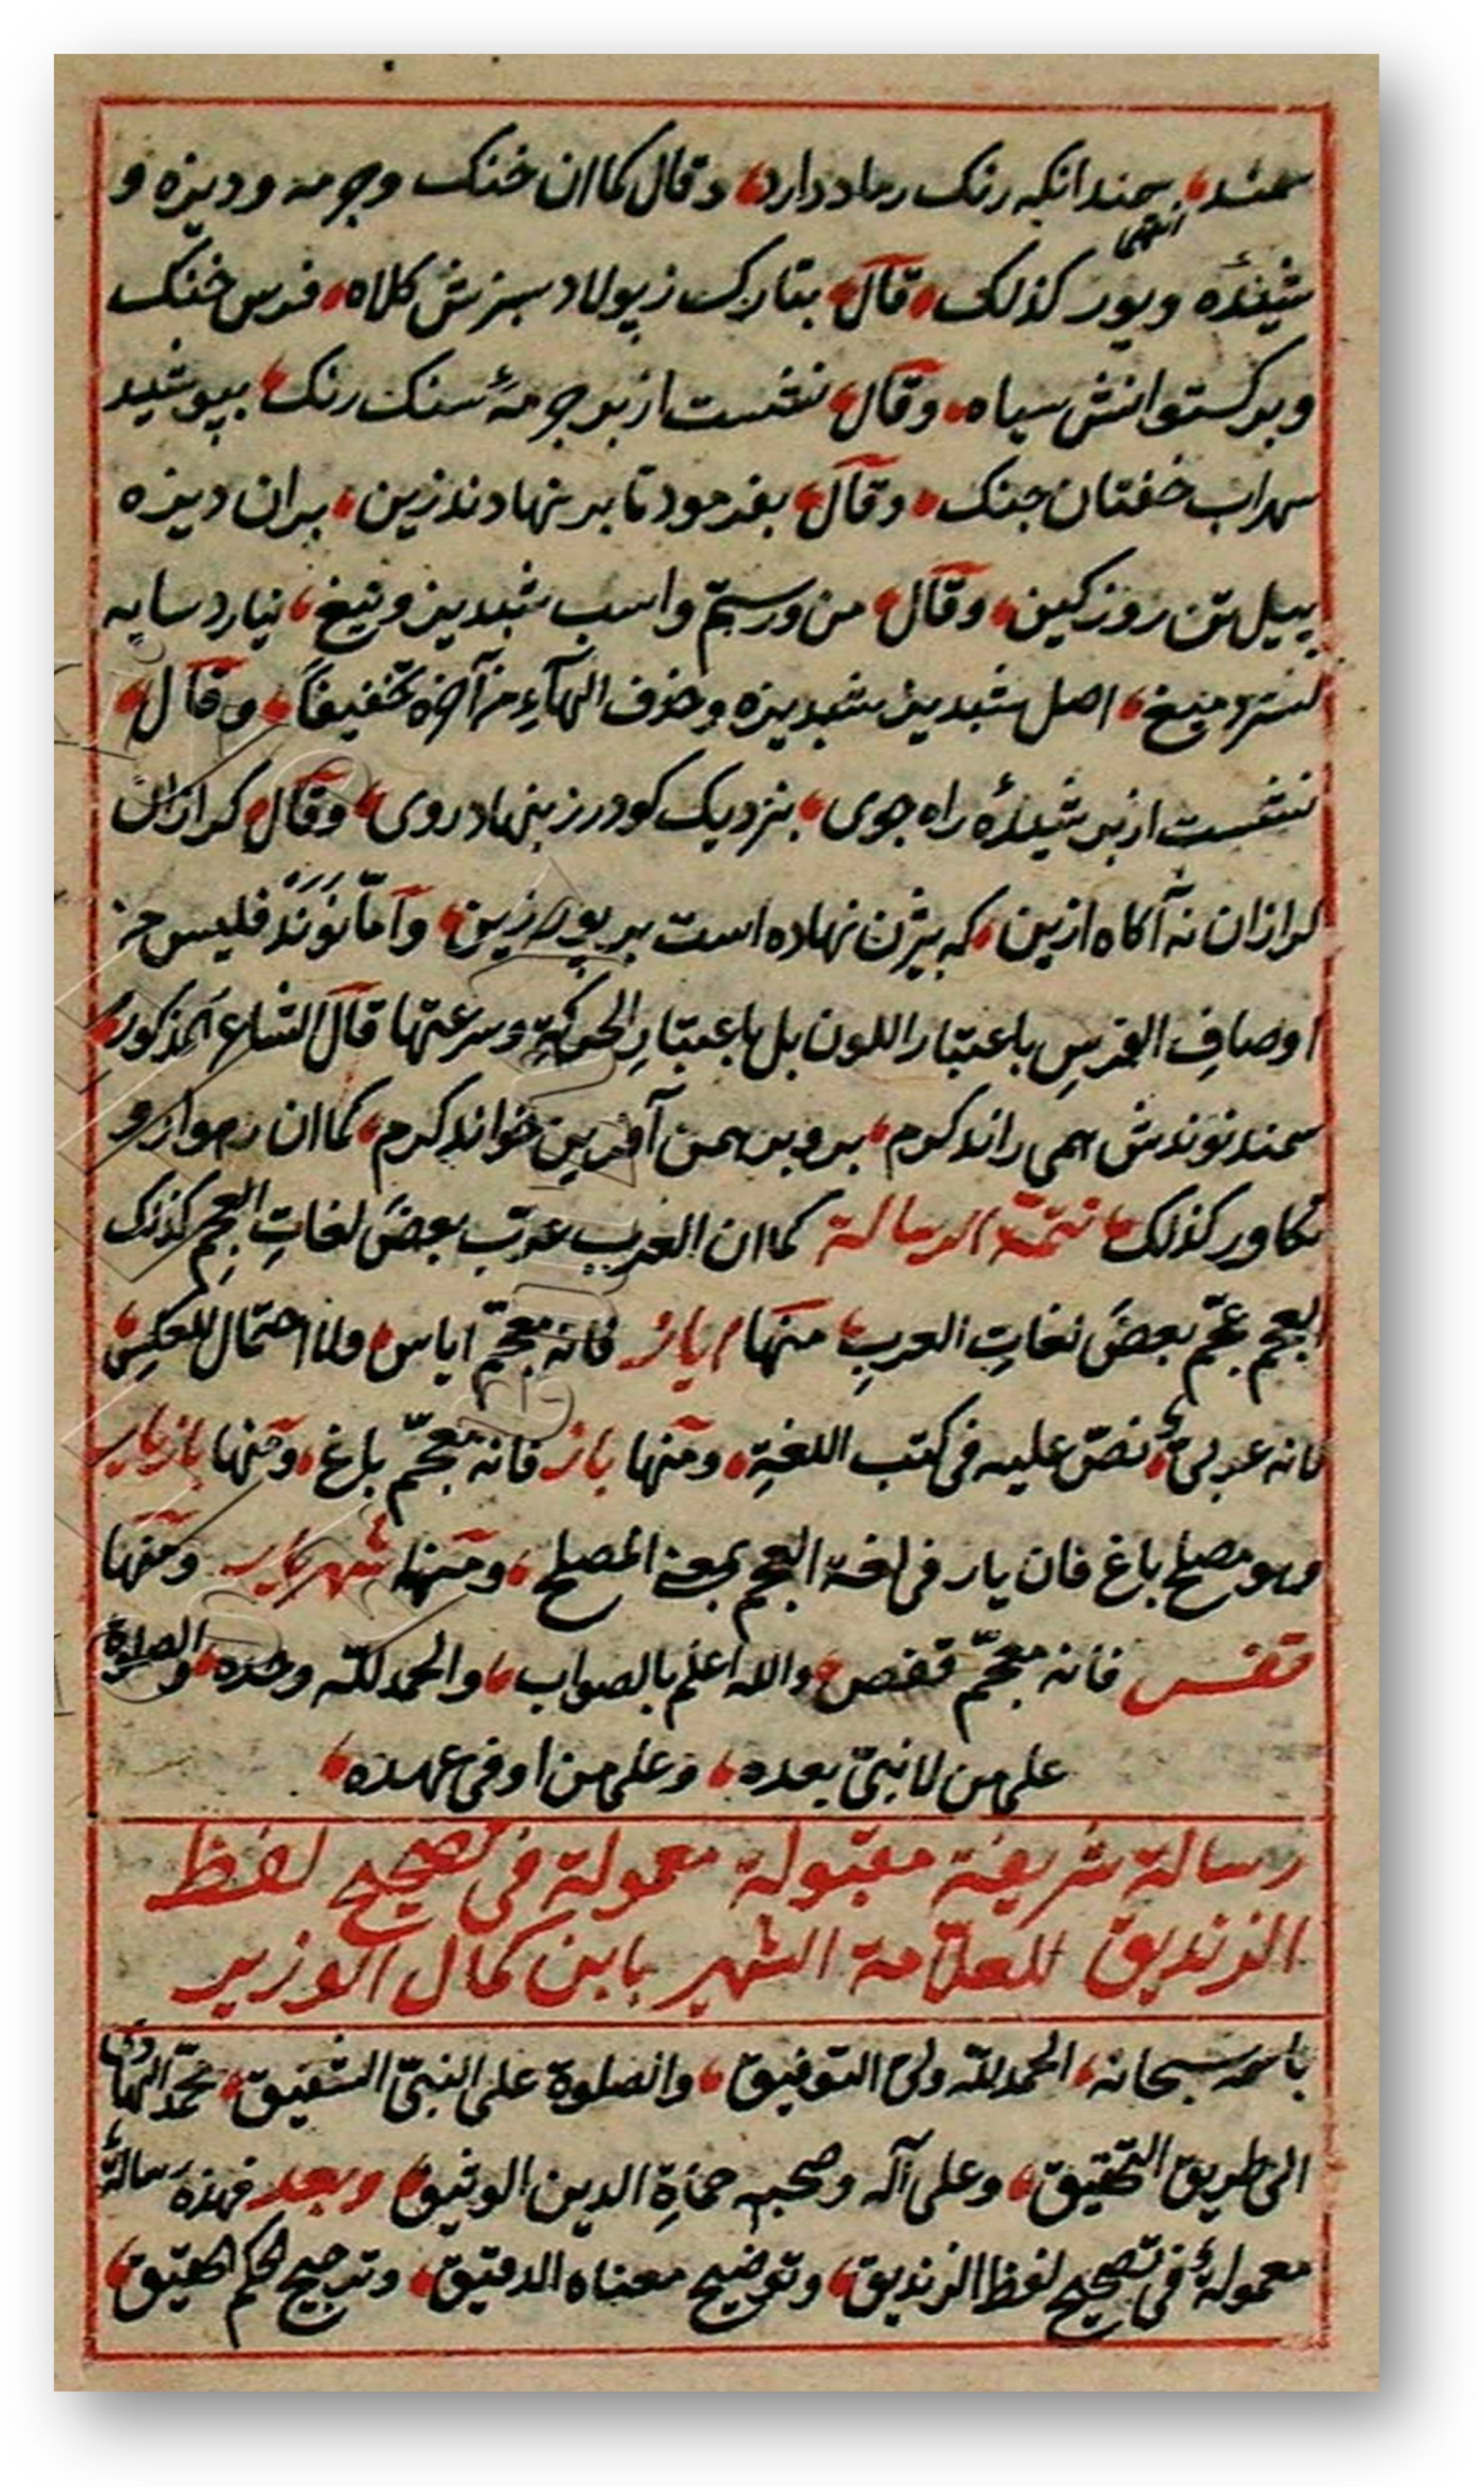 سمند، سمند انکه رنک رماد دارد، وقال کما ان خنک وجرمه ودیزه و
انتهی
شیدۀ وبور کذلک، قال، بتارک زپولاد سبزش کلاه، فرس خنک
وبرکستوانش سیاه، وقال، نشست از بر جرمۀ سنک رنک، بپوشید
سهراب خفتان جنک، وقال، بفرمود تا بر نهادند زین، بران دیزه
پیل تن روز کین، وقال، من ورستم واسب شبدیز وتیغ، نیارد سایه
کسترد میغ، اصل شبدیز شبدیزه وحذف الهاء من آخره تخفیفاً، وقال،
نشست از بر شیدۀ راه جوی، بنزدیک کودرز بنهاد روی، وقال، کرازان
کرازان نه آکاه ازین، که بیژن نهاده است بر بور زین، واما نوند فلیس من
اوصاف الفرس باعتبار اللون بل باعتبار الحرکة وسرعتها قال الشاعر المذکور،
سمند نوندش همی راند کرم، برو بر همن آفرین خواند کرم، کما ان رهوار و
تکاور کذلک، تتمة الرسالة کما ان العرب عرّب بعض لغات العجم کذلک
العجم عجّم بعض لغات العرب، منها ایاز فانه معجّم ایاس، ولا احتمال للعکس،
فانه عربیّ، نصّ علیه فی کتب اللغة، ومنها باز فانه معجّم باغ، ومنها بازیار
وهو مصلح باغ فان یار فی لغة العجم بمعنی المصلح، ومنها شهریار ومنها
قفس فانه معجّم قفص، والله اعلم بالصواب، والحمد لله وحده، والصلوة
علی من لا نبیّ بعده، وعلی من اوفی عهده،
رسالة شریفة مقبولة معمولة فی تصحیح لفظ
الزندیق للعلامة الشهیر بابن کمال الوزیر
باسمه سبحانه، الحمد لله ولیّ التوفیق، والصلوة علی النبیّ الشفیق، محمّد الهادی
الی طریق التحقیق، وعلی آله وصحبه حماة الدین الوثیق، وبعد فهذه رسالة
معمولة فی تصحیح لفظ الزندیق، وتوضیح معناه الدقیق، وترجیح حکم الحقیق،